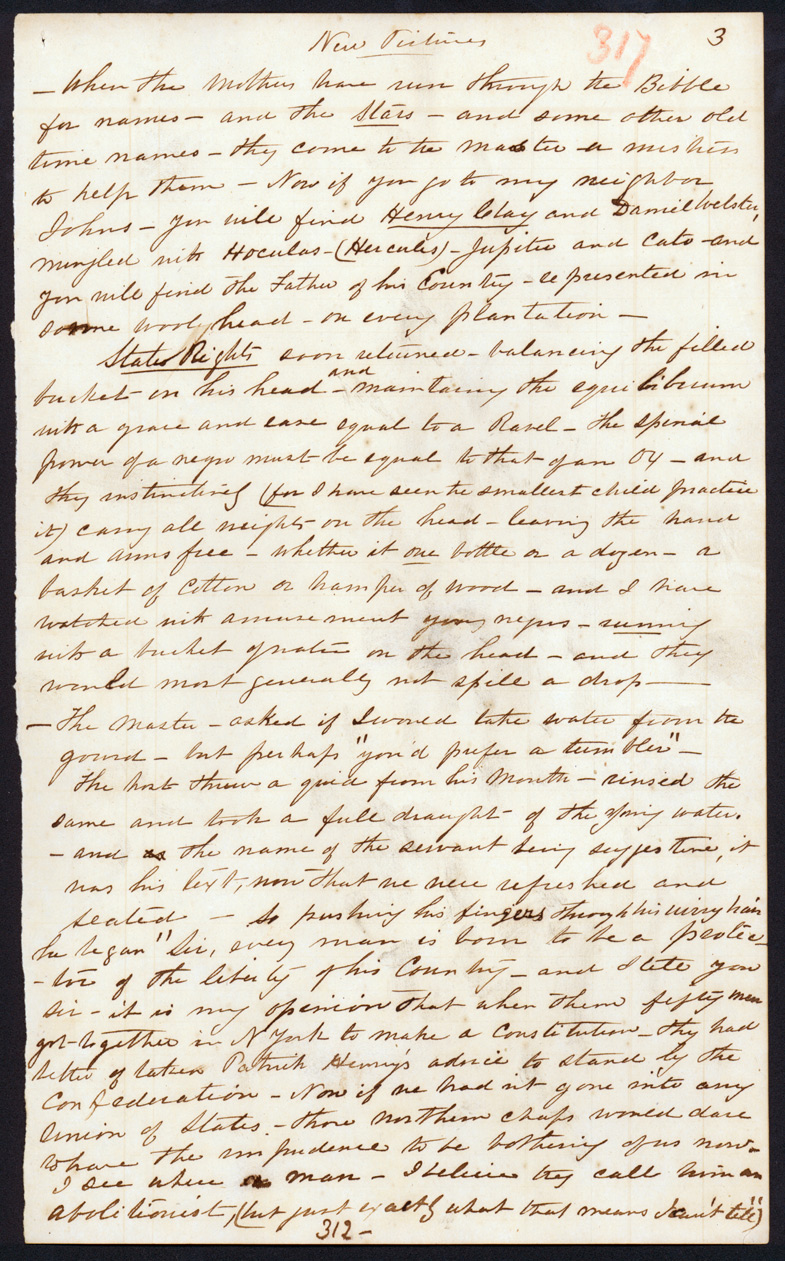 New Pictures
317
3
— When the Mothers have run through the Bibble
for names — and the Stars — and some other old
time names — they come to the master or mistress
to help them — Now if you go to my neighbor
Johns — you will find Henry Clay and Daniel Webster,
mingled with Hoculas — (Hercules) — Jupiter and Cato — and
you will find the Father of his Country — represented in
some wooly head — on every plantation —
States Rights soon returned — balancing the filled
bucket on his head — and maintaining the equilibrium
with a grace and ease equal to a Ravel — the spinal
power of a negro must be equal to that of an Ox — and
they instinctively (for I have seen the smallest child practice
it) carry all weights on the head — leaving the hand
and arms free — whether it one bottle or a dozen — a
basket of Cotton or hamper of wood — and I have
watched with amusement young negros — running
with a bucket of water on the head — and they
would most generally not spill a drop —
— The Master — asked if I would take water from the
gourd — but perhaps "you'd prefer a tumbler" —
The host threw a quid from his Mouth — rinsed the
same and took a full draught of the water.
— and as the name of the servant being suggestive, it
was his text, now that we were refreshed and
seated — So pushing his fingers through his wirry hair
he began "Sir, every man is born to be a protec-
-tor of the liberty of his Country — and I tell you
sir — it is my opinion that when them fifty men
got together in N York to make a Constitution — they had
better of taken Patrick Henry's advice to stand by the
Confederation — Now if we had n't gone into any
Union of States — those northern chaps would dare
to have the impudence to be bothering of us now —
I see where a man — I believe they call him an
abolitionist, (but just exactly what that means I can't tell")
312 —